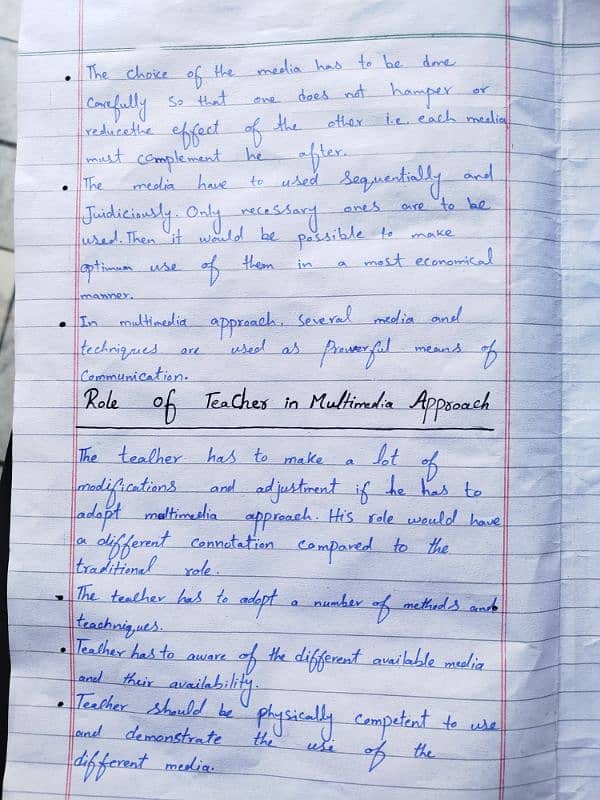 • The choice of the media has to be done
carefully so that one does not hamper or
reducethe effect of the other i.e. each media
must complement he after.
• The media have to used sequentially and
Juidiciously. Only necessary ones are to be
used. Then it would be possible to make
optimum use of them in a most economical
manner.
• In multimedia approach, several media and
techniques are used as Prowerful means of
Communication.
Role of Teacher in Multimedia Approach
The tealher has to make a lot of
modifications and adjustment if he has to
adopt maltimedia approach. His role would have
a different connotation compared to the
traditional role.
- The teacher has to adopt a number of methods and
teachniques.
• Tealher has to aware of the different available media
and their availability.
• Teacher should be physically competent to use
and demonstrate the use of the
different media.